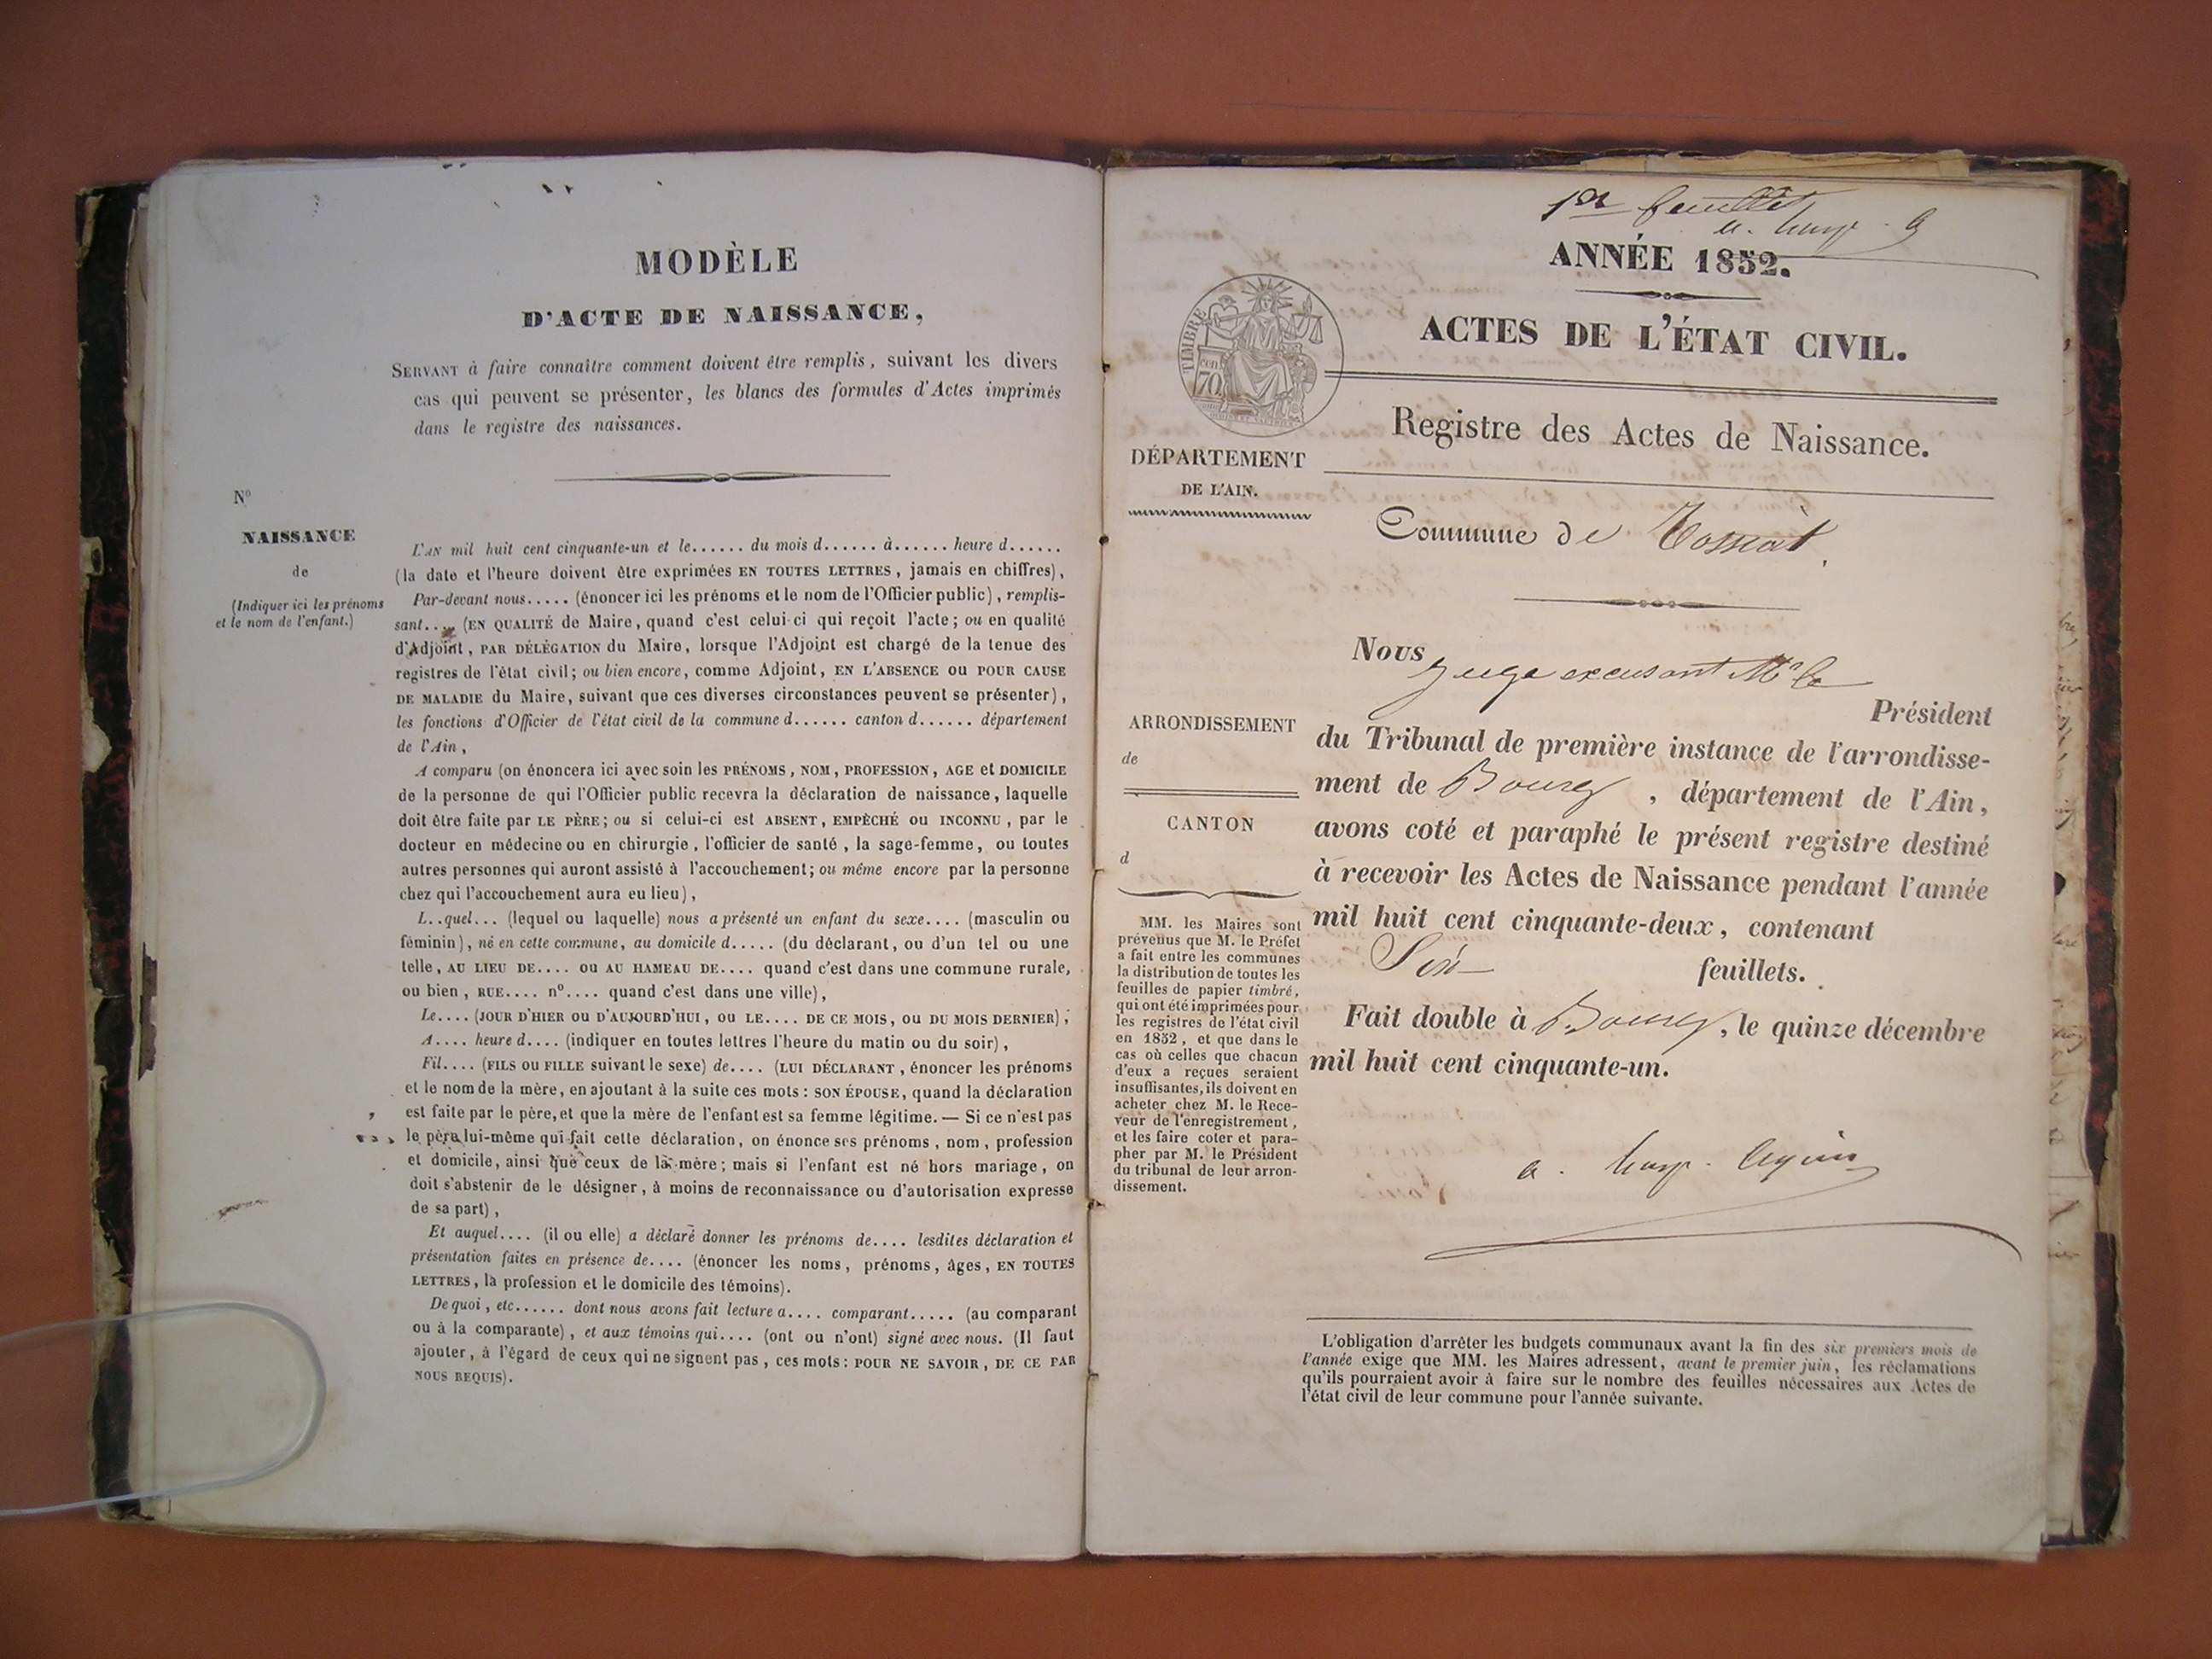 MODÈLE
D'ACTE DE NAISSANCE,
SERVANT à faire connaître comment doivent être remplis, suivant les divers
cas qui peuvent se présenter, les blancs des formules d'Actes imprimés
dans le registre des naissances.
N°
NAISSANCE
de
(Indiquer ici les prénoms
et le nom de l'enfant.)
L'AN mil huit cent cinquante-un et le...... du mois d...... à...... heure d......
(la date et l'heure doivent être exprimées EN TOUTES LETTRES, jamais en chiffres),
Par-devant nous..... (énoncer ici les prénoms et le nom de l'Officier public), remplis-
sant.... (EN QUALITÉ de Maire, quand c'est celui-ci qui reçoit l'acte; ou en qualité
d'Adjoint, PAR DÉLÉGATION du Maire, lorsque l'Adjoint est chargé de la tenue des
registres de l'état civil; ou bien encore, comme Adjoint, EN L'ABSENCE OU POUR CAUSE
DE MALADIE du Maire, suivant que ces diverses circonstances peuvent se présenter),
les fonctions d'Officier de l'état civil de la commune d...... canton d...... département
de l'Ain,
A comparu (on énoncera ici avec soin les PRÉNOMS, NOM, PROFESSION, AGE et DOMICILE
de la personne de qui l'Officier public recevra la déclaration de naissance, laquelle
doit être faite par LE PÈRE; ou si celui-ci est ABSENT, EMPÊCHÉ ou INCONNU, par le
docteur en médecine ou en chirurgie, l'officier de santé, la sage-femme, ou toutes
autres personnes qui auront assisté à l'accouchement; ou même encore par la personne
chez qui l'accouchement aura eu lieu),
L..quel... (lequel ou laquelle) nous a présenté un enfant du sexe.... (masculin ou
féminin), né en cette commune, au domicile d..... (du déclarant, ou d'un tel ou une
telle, AU LIEU DE.... OU AU HAMEAU DE.... quand c'est dans une commune rurale,
ou bien, RUE.... n°.... quand c'est dans une ville),
Le.... (JOUR D'HIER OU D'AUJOURD'HUI, OU LE.... DE CE MOIS, OU DU MOIS DERNIER),
A.... heure d.... (indiquer en toutes lettres l'heure du matin ou du soir),
Fil.... (FILS OU FILLE suivant le sexe) de.... (LUI DÉCLARANT, énoncer les prénoms
et le nom de la mère, en ajoutant à la suite ces mots: SON ÉPOUSE, quand la déclaration
est faite par le père, et que la mère de l'enfant est sa femme légitime. — Si ce n'est pas
le père lui-même qui fait cette déclaration, on énonce ses prénoms, nom, profession
et domicile, ainsi que ceux de la mère; mais si l'enfant est né hors mariage, on
doit s'abstenir de le désigner, à moins de reconnaissance ou d'autorisation expresse
de sa part),
Et auquel.... (il ou elle) a déclaré donner les prénoms de.... lesdites déclaration et
présentation faites en présence de.... (énoncer les noms, prénoms, âges, EN TOUTES
LETTRES, la profession et le domicile des témoins).
De quoi, etc...... dont nous avons fait lecture a.... comparant..... (au comparant
ou à la comparante), et aux témoins qui.... (ont ou n'ont) signé avec nous. (Il faut
ajouter, à l'égard de ceux qui ne signent pas, ces mots: POUR NE SAVOIR, DE CE PAR
NOUS REQUIS).
1er feuillet
ANNÉE 1852.
ACTES DE L'ÉTAT CIVIL.
TIMBRE
70 cen
Registre des Actes de Naissance.
DÉPARTEMENT
DE L'AIN.
Commune de Tossiat.
Nous
Juge excusant Mr le
Président
du Tribunal de première instance de l'arrondisse-
ment de Bourg, département de l'Ain,
avons coté et paraphé le présent registre destiné
à recevoir les Actes de Naissance pendant l'année
mil huit cent cinquante-deux, contenant
feuillets.
Fait double à Bourg, le quinze décembre
mil huit cent cinquante-un.
ARRONDISSEMENT
de
CANTON
d
MM. les Maires sont
prévenus que M. le Préfet
a fait entre les communes
la distribution de toutes les
feuilles de papier timbré,
qui ont été imprimées pour
les registres de l'état civil
en 1852, et que dans le
cas où celles que chacun
d'eux a reçues seraient
insuffisantes, ils doivent en
acheter chez M. le Rece-
veur de l'enregistrement,
et les faire coter et para-
pher par M. le Président
du tribunal de leur arron-
dissement.
L'obligation d'arrêter les budgets communaux avant la fin des six premiers mois de
l'année exige que MM. les Maires adressent, avant le premier juin, les réclamations
qu'ils pourraient avoir à faire sur le nombre des feuilles nécessaires aux Actes de
l'état civil de leur commune pour l'année suivante.